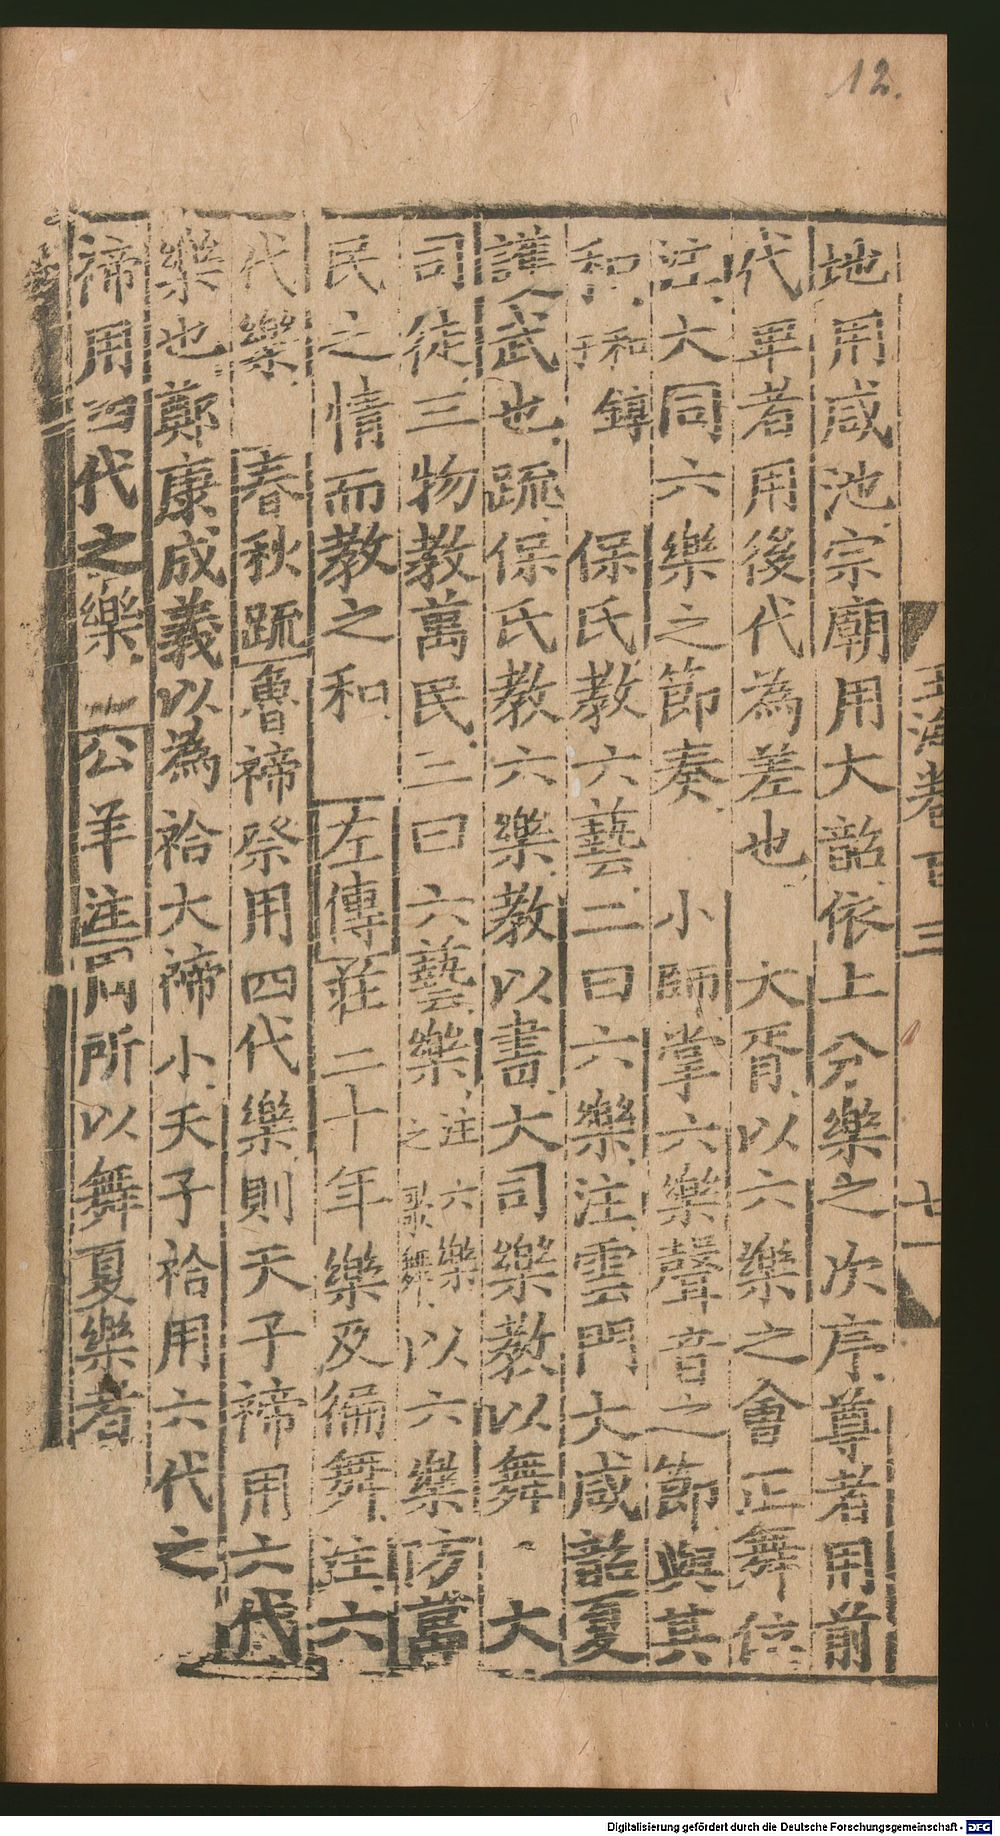 12.
玉海卷百三
十一
地用咸池宗廟用大韶依上分樂之次序尊者用前
代卑者用後代為差也 大胥以六樂之會正舞位
注大同六樂之節奏 小師掌六樂聲音之節與其
和 和錞 保氏教六藝二曰六樂注雲門大咸韶夏
護武也疏保氏教六樂教以書大司樂教以舞 大
司徒三物教萬民三曰六藝樂注六樂之歌舞以六樂防萬
民之情而教之和 左傳莊二十年樂及徧舞注六
代樂 春秋疏魯禘祭用四代樂則天子禘用六代
樂也鄭康成義以為祫大禘小天子祫用六代之
禘用四代之樂 公羊注周所以舞夏樂者
Digitalisierung gefördert durch die Deutsche Forschungsgemeinschaft - DFG